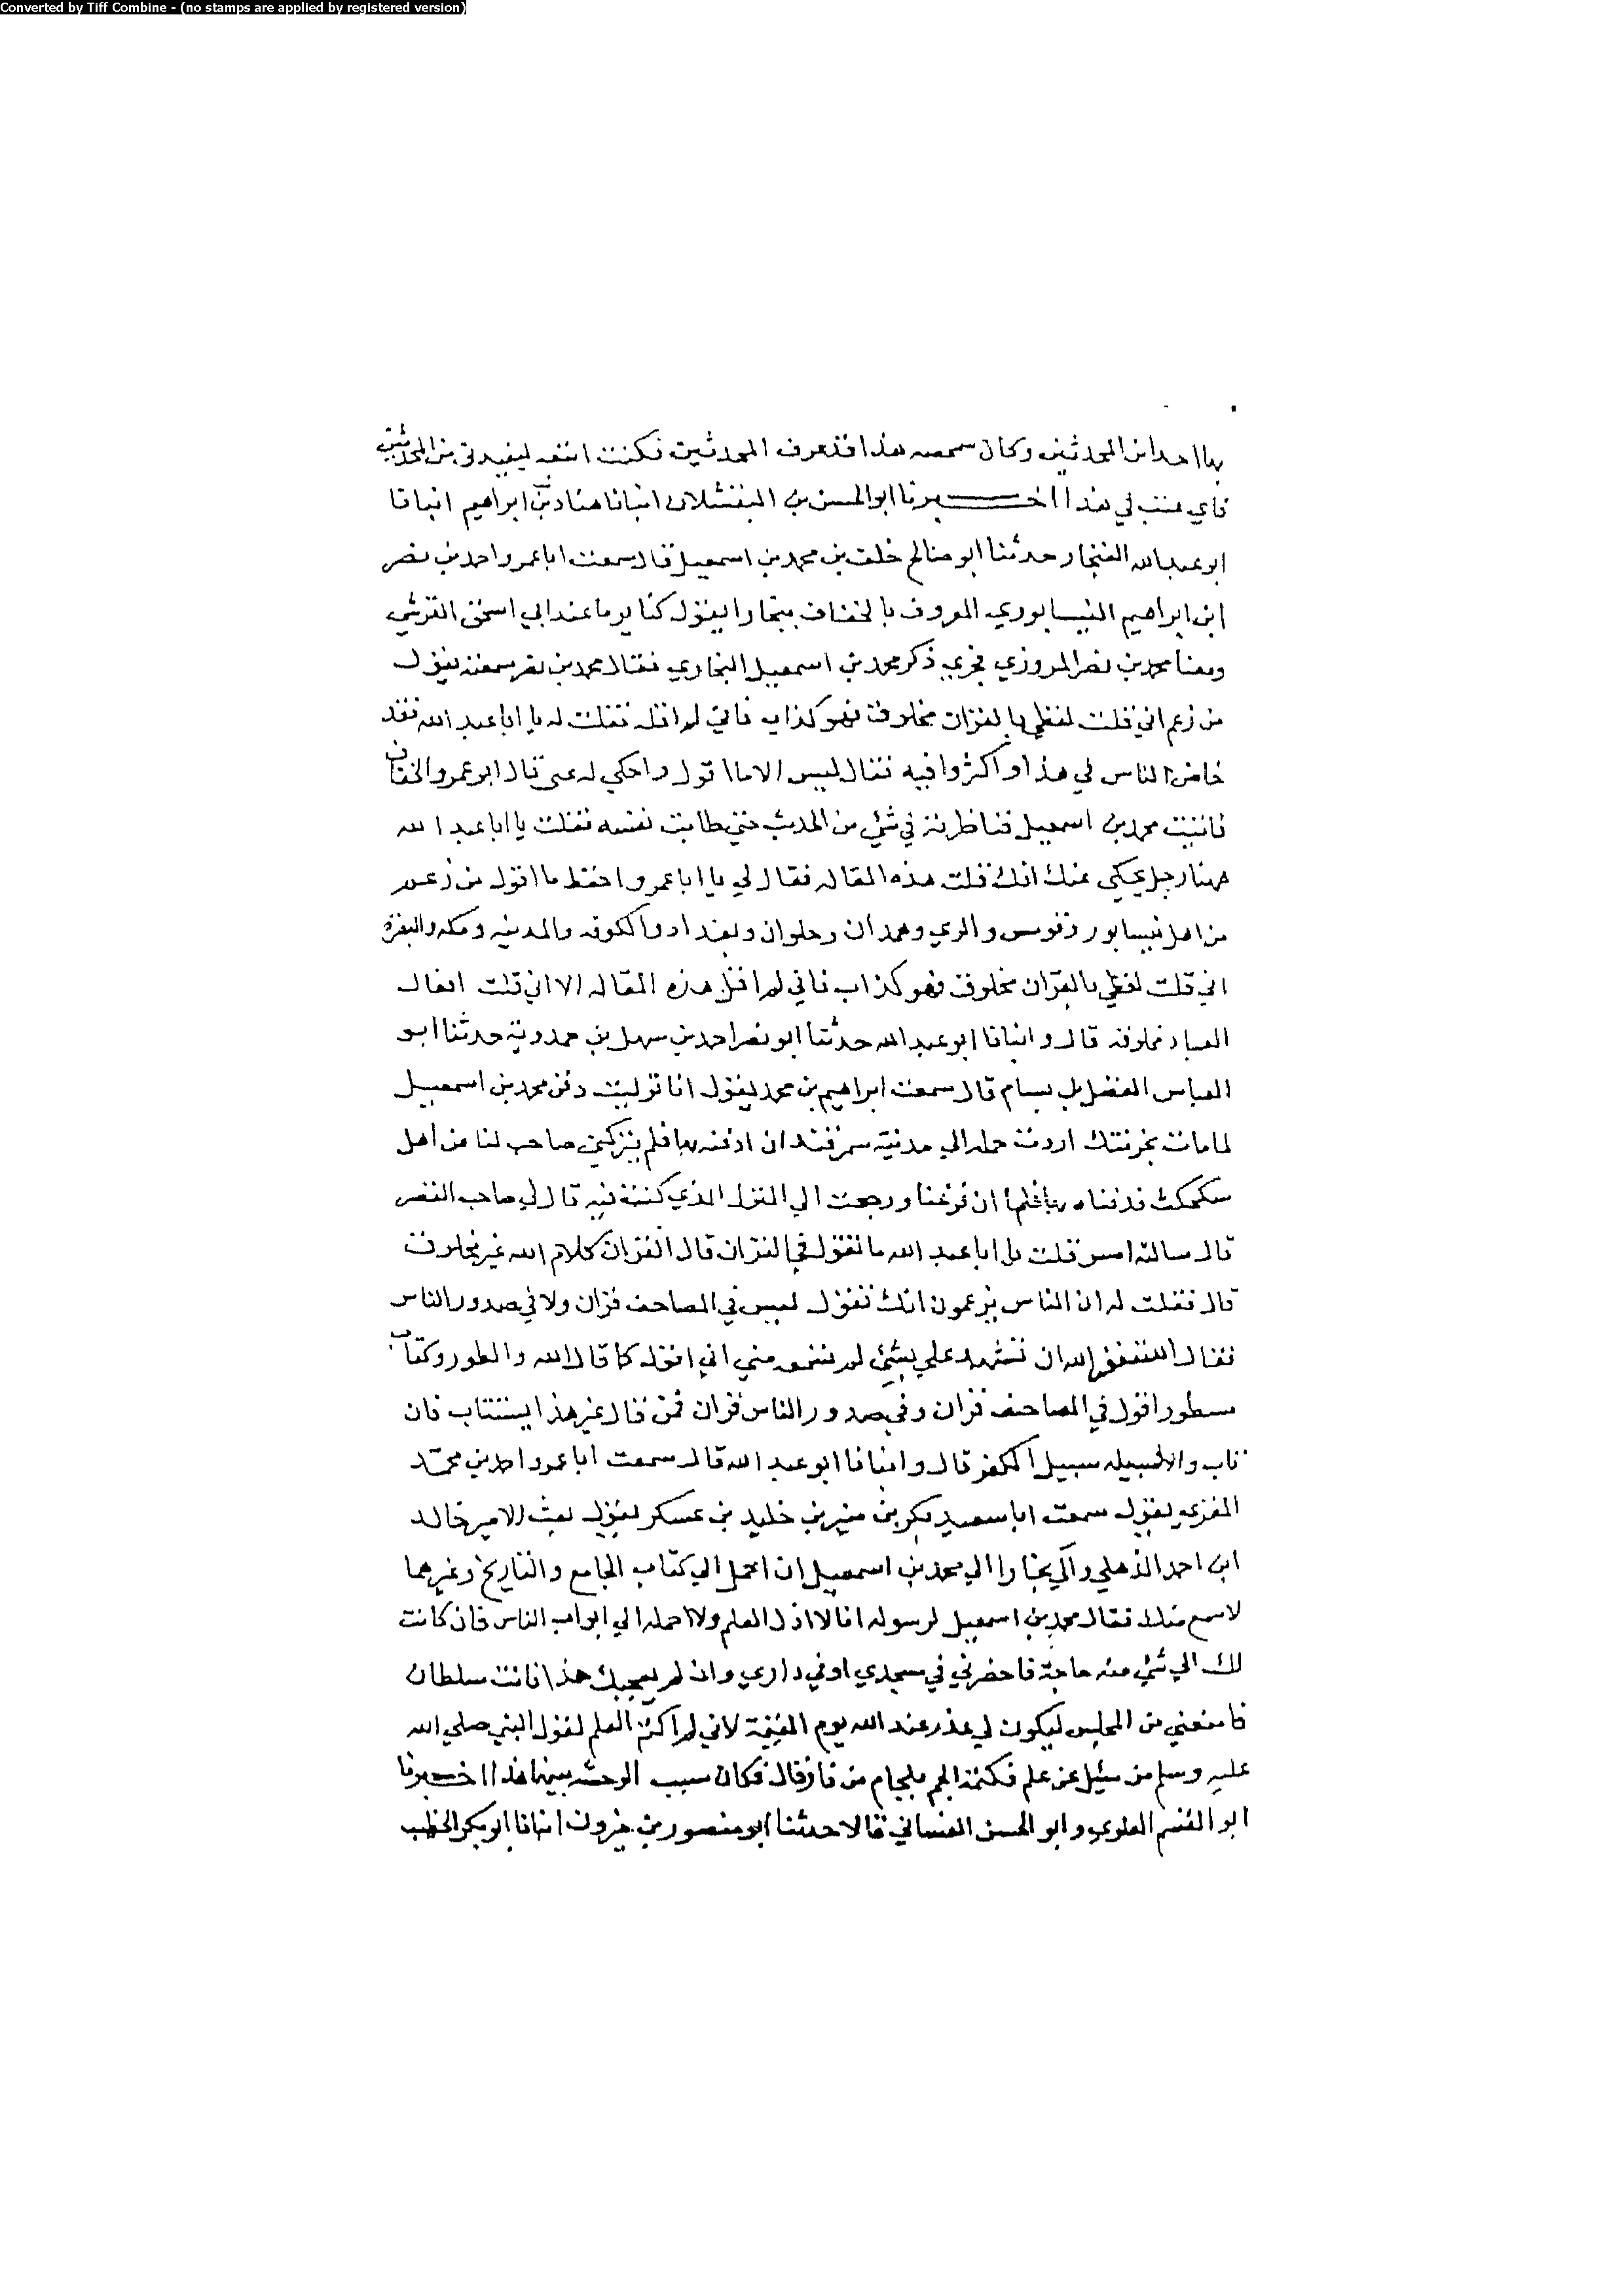 Converted by Tiff Combine - (no stamps are applied by registered version)
بها احدا من المحدثين وكان سمعه هذا قد عرف المحدثين فكنت اتبعه ليفيدني من المحدثين
فاي عتب لي هذا اخبرنا ابو الحسن بن البقشلان انبانا هناد بن ابراهيم انبانا
ابو عبد الله الغنجار حدثنا ابو صالح خلف بن محمد بن اسمعيل قال سمعت ابا عمرو احمد بن نصر
ابن ابراهيم النيسابوري المعروف بالخفاف ببخارا يقول كنا يوما عند ابي اسحق القرشي
ومعنا محمد بن نصر المروزي فجري ذكر محمد بن اسمعيل البخاري فقال محمد بن نصر سمعته يقول
من زعم اني قلت لفظي بالقران مخلوق فهو كذاب فاني لم اقله فقلت له يا ابا عبد الله فقد
خاض الناس في هذا واكثروا فيه فقال ليس الا ما اقول واحكي له عني قال ابو عمرو الخفاف
فاتيت محمد بن اسمعيل فناظرته في شئ من الحديث حتي طابت نفسه فقلت يا ابا عبد الله
ههنا رجل يحكي عنك انك قلت هذه المقاله فقال لي يا ابا عمرو احفظ ما اقول من زعم
من اهل نيسابور وقومس والري وهمدان وحلوان وبغداد والكوفه والمدينه ومكه والبصرة
اني قلت لفظي بالقران مخلوق فهو كذاب فاني لم اقل هذه المقاله الا اني قلت افعال
العباد مخلوقه قال وانبانا ابو عبد الله حدثنا ابو نصر احمد بن سهل بن حمدوية حدثنا ابو
العباس الفضل بن بسام قال سمعت ابراهيم بن محمد يقول انا توليت دفن محمد بن اسمعيل
لما مات بخرتنك اردت حمله الي مدينة سمرقند ان ادفنه بها فلم يتركني صاحب لنا من اهل
سكجكث فدفناه بها فلما ان فرغنا ورجعت الي المنزل الذي كنت فيه قال لي صاحب القصر
قال سالته امس قلت يا ابا عبد الله ما تقول في القران قال القران كلام الله غير مخلوق
قال فقلت له ان الناس يزعمون انك تقول ليس في المصاحف قران ولا في صدور الناس
فقال استغفر الله ان تشهد علي بشئ لم تسمعه مني اني اقول كما قال الله والطور وكتاب
مسطور اقول في المصاحف قران وفي صدور الناس قران فمن قال غير هذا يستتاب فان
تاب والا فسبيله سبيل الكفر قال وانبانا ابو عبد الله قال سمعت ابا عمرو احمد بن محمد
المقري يقول سمعت ابا سعيد بكر بن منير بن خليد بن عسكر يقول بعث الامير خالد
ابن احمد الذهلي والي بخارا الي محمد بن اسمعيل ان احمل الي كتاب الجامع والتاريخ وغيرهما
لاسمع منك فقال محمد بن اسمعيل لرسوله انا لا اذل العلم ولا احمله الي ابواب الناس فان كانت
لك الي شئ منه حاجة فاحضرني في مسجدي او في داري وان لم يعجبك هذا فانت سلطان
فامنعني من المجلس ليكون لي عذر عند الله يوم القيمة لاني لم اكتم العلم لقول النبي صلي الله
عليه وسلم من سئل عن علم فكتمه الجم بلجام من نار قال فكان سبب الوحشه بينهما هذا اخبرنا
ابو القسم العلوي وابو الحسن الغساني قالا حدثنا ابو منصور بن خيرون انبانا ابو بكر الخطيب